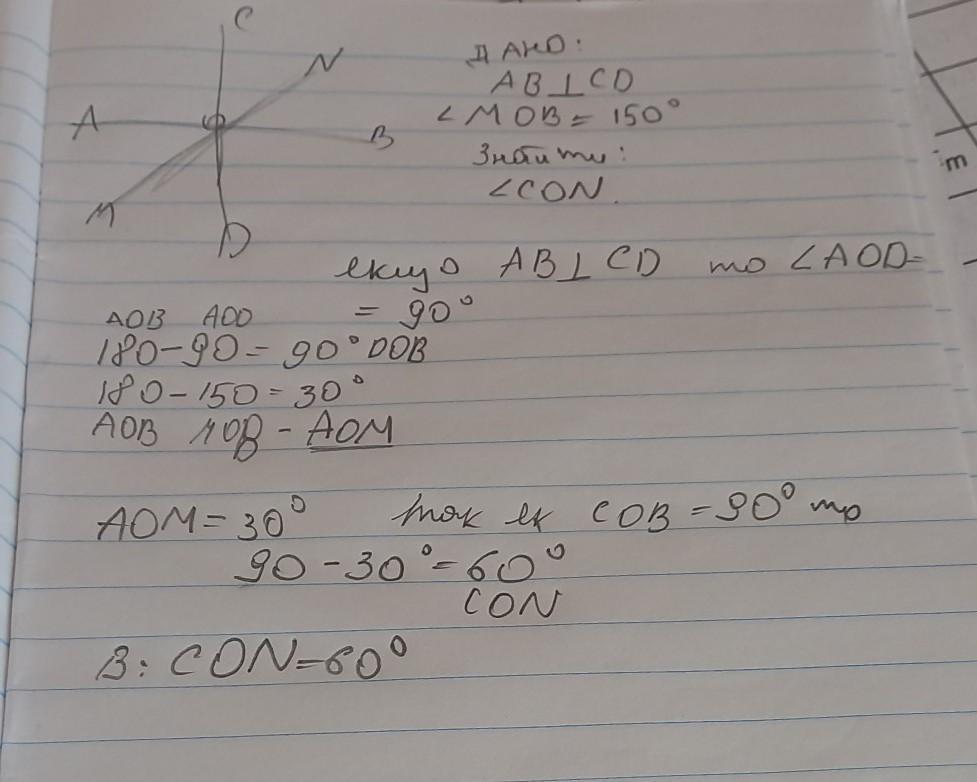 C
N
A
B
M
D
ДАНО:
AB⊥CD
<MOB=150°
Знайти:
<CON.
якщо AB⊥CD то <AOD=
= 90°
AOB AOD
180-90=90° DOB
180-150=30°
AOB MOB - AOM
AOM=30° так як COB=90° то
90-30°=60°
CON
В: CON=60°